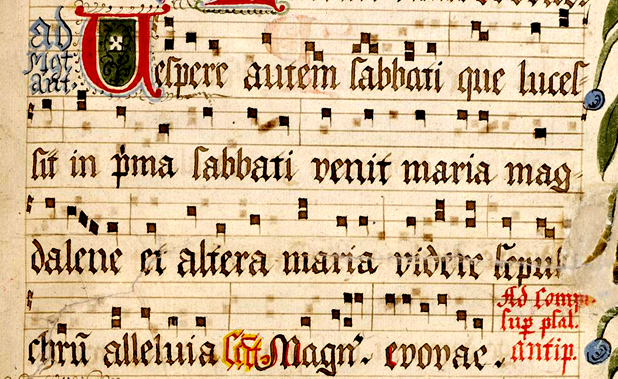 ad
Mgt
ant.
Vespere autem sabbati que luces-
sit in pma sabbati venit maria mag-
dalene et altera maria videre sepul
chrū alleluia Magn. evovae.
Ad Comp
sup psal.
antip.